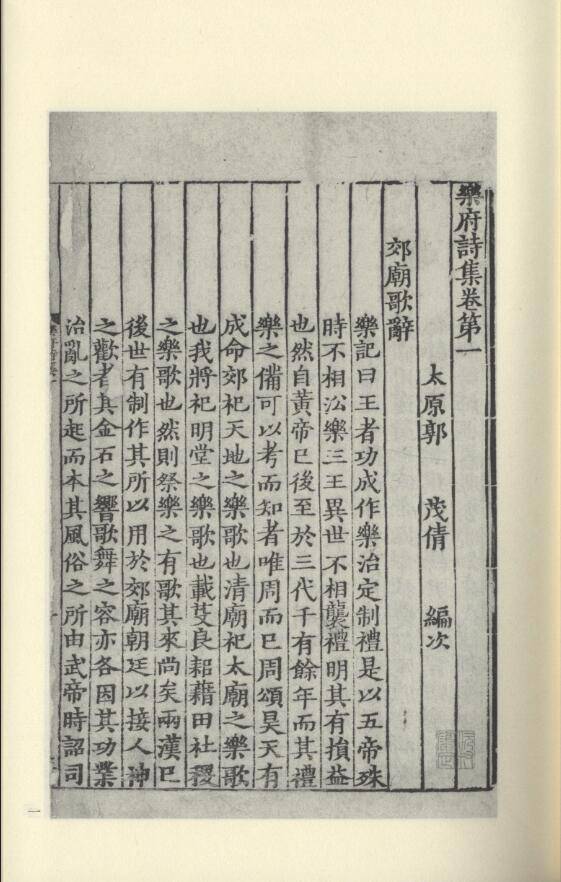 樂府詩集卷第一
太原郭 茂倩 編次
郊廟歌辭
樂記曰王者功成作樂治定制禮是以五帝殊
時不相㳂樂三王異世不相襲禮明其有損益
也然自黃帝巳後至於三代千有餘年而其禮
樂之備可以考而知者唯周而巳周頌昊天有
成命郊祀天地之樂歌也清廟祀太廟之樂歌
也我將祀明堂之樂歌也載芟良耜藉田社稷
之樂歌也然則祭樂之有歌其來尚矣兩漢巳
後世有制作其所以用於郊廟朝廷以接人神
之歡者其金石之響歌舞之容亦各因其功業
治亂之所起而本其風俗之所由武帝時詔司
一